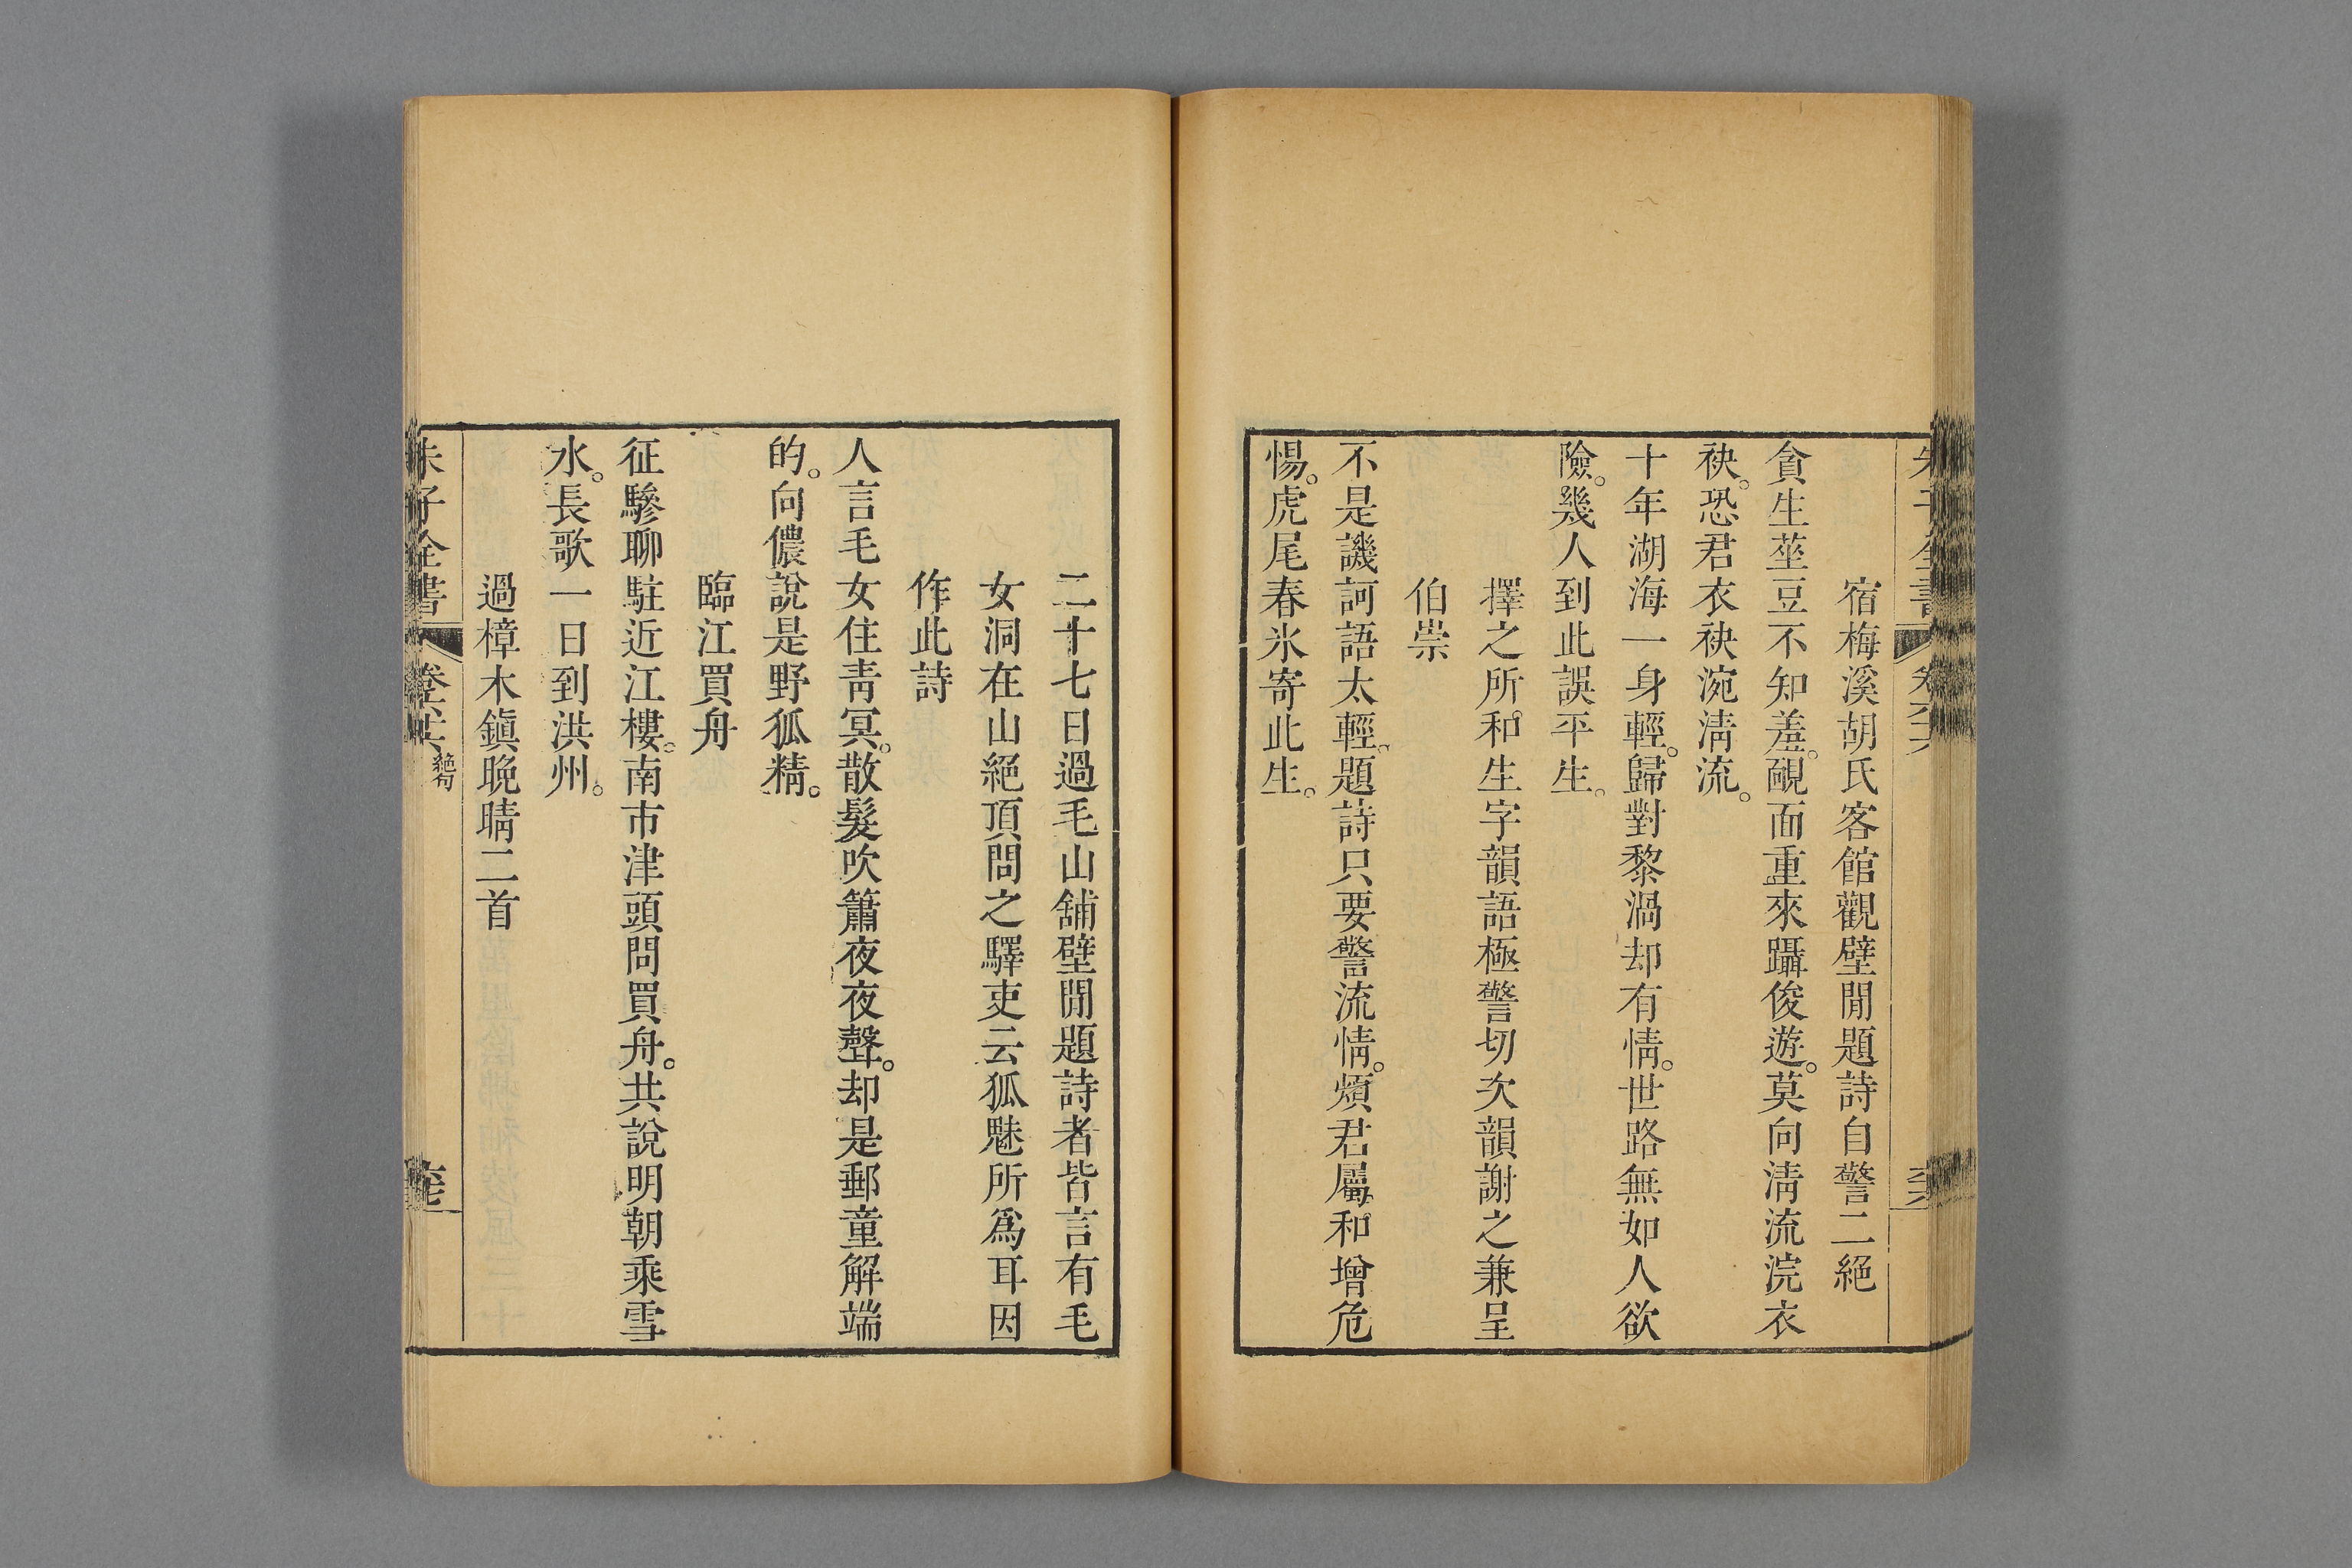 宿梅溪胡氏客館觀壁間題詩自警二絕
貪生莝豆不知羞。靦面重來躡俊遊。莫向淸流浣衣
袂。恐君衣袂涴淸流。
十年湖海一身輕。歸對黎渦却有情。世路無如人欲
險。幾人到此誤平生。
擇之所和生字韻語極警切次韻謝之兼呈
伯崇
不是譏訶語太輕。題詩只要警流情。煩君屬和增危
惕。虎尾春氷寄此生。
二十七日過毛山舖壁間題詩者皆言有毛
女洞在山絕頂問之驛吏云狐魅所爲耳因
作此詩
人言毛女住靑冥。散髮吹簫夜夜聲。却是郵童解端
的。向儂說是野狐精。
臨江買舟
征驂聊駐近江樓。南市津頭問買舟。共說明朝乘雪
水。長歌一日到洪州。
過樟木鎭晚晴二首
朱子全書
卷六十六
絕句